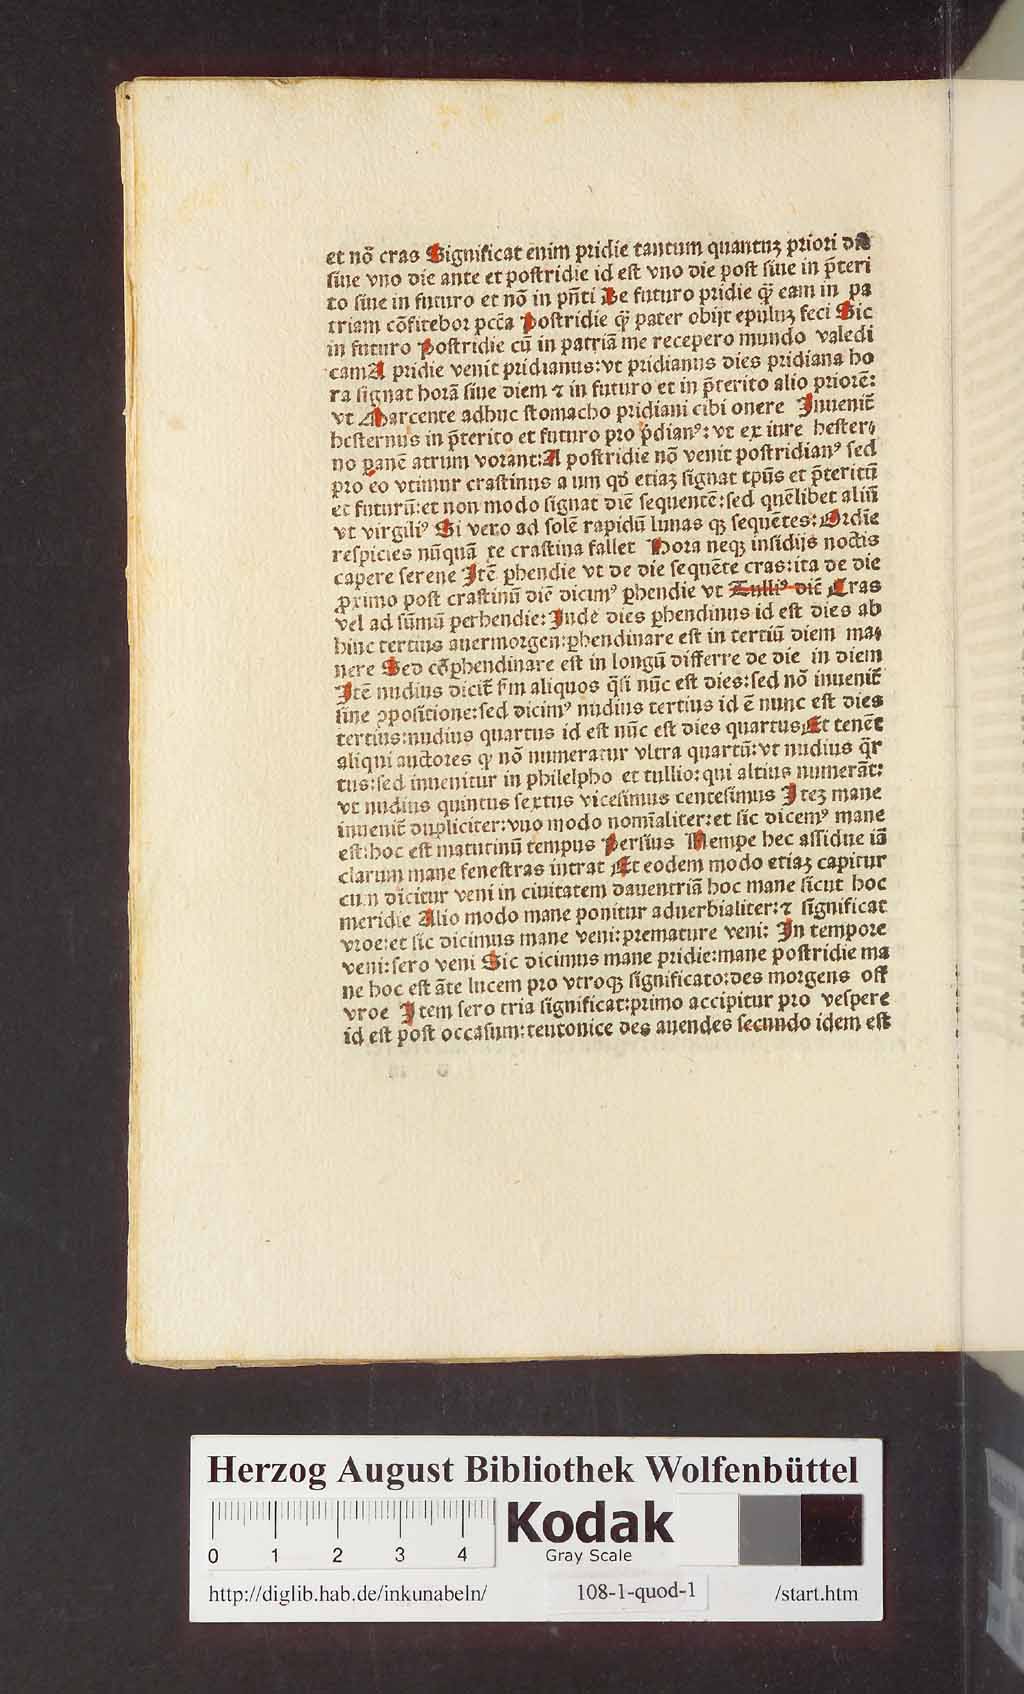 et nō cras Significat enim pridie tantum quantuꝫ priori die
siue vno die ante et postridie id est vno die post siue in p̄teri
to siue in futuro et nō in pn̄ti De futuro pridie qȝ̄ eam in pa
triam cōfitebor pcc̄a Postridie qȝ̄ pater obijt epuluꝫ feci Sic
in futuro Postridie cū in patriā me recepero mundo valedi
cam A pridie venit pridianus: vt pridianus dies pridiana ho
ra signat horā siue diem ⁊ in futuro et in p̄terito alio priorē:
vt Marcente adhuc stomacho pridiani cibi onere Inuenit̄
hesternus in p̄terito et futuro pro p̄dianꝰ: vt ex iure hester⸗
no panē atrum vorant: A postridie nō venit postridianꝰ sed
pro eo vtimur crastinus a um qd̛ etiaꝫ signat tp̄us et p̄teritū
et futurū: et non modo signat diē sequentē: sed quēlibet aliū
vt virgiliꝰ Si vero ad solē rapidū lunas qꝫ sequētes: Ordīe
respicies nūquā te crastina fallet Hora neqꝫ insidijs noctis
capere serene Itē ꝑhendie vt de die sequēte cras: ita de die
ꝓximo post crastinū diē dicimꝰ ꝑhendie vt Tulliꝰ diē Cras
vel ad sūmū perhendie: Inde dies ꝑhendinus id est dies ab
hinc tertius auermorgen: ꝑhendinare est in tertiū diem ma⸗
nere Sed cōꝑhendinare est in longū differre de die in diem
Itē nudius dicit̄ ẜm aliquos q̄si nūc est dies: sed nō inuenit̄
sine ↄpositione: sed dicimꝰ nudius tertius id ē nunc est dies
tertius: nudius quartus id est nūc est dies quartus Et tenēt
aliqui auctores ꝙ nō numeratur vltra quartū: vt nudius q̄r
tus: sed inuenitur in philelpho et tullio: qui altius numerāt:
vt nudius quintus sextus vicesimus centesimus Iteꝫ mane
inuenit̄ dupliciter: vno modo nomīaliter: et sic dicemꝰ mane
est: hoc est matutinū tempus Persius Nempe hec assidue iā
clarum mane fenestras intrat Et eodem modo etiaꝫ capitur
cum dicitur veni in ciuitatem dauentriā hoc mane sicut hoc
meridie Alio modo mane ponitur aduerbialiter: ⁊ significat
vroe: et sic dicimus mane veni: premature veni: In tempore
veni: sero veni Sic dicimus mane pridie: mane postridie ma
ne hoc est āte lucem pro vtroqꝫ significato: des morgens off
vroe Item sero tria significat: primo accipitur pro vespere
id est post occasum: teutonice des auendes secundo idem est
Herzog August Bibliothek Wolfenbüttel
0 1 2 3 4
Kodak
Gray Scale
http://diglib.hab.de/inkunabeln/ 108-1-quod-1 /start.htm